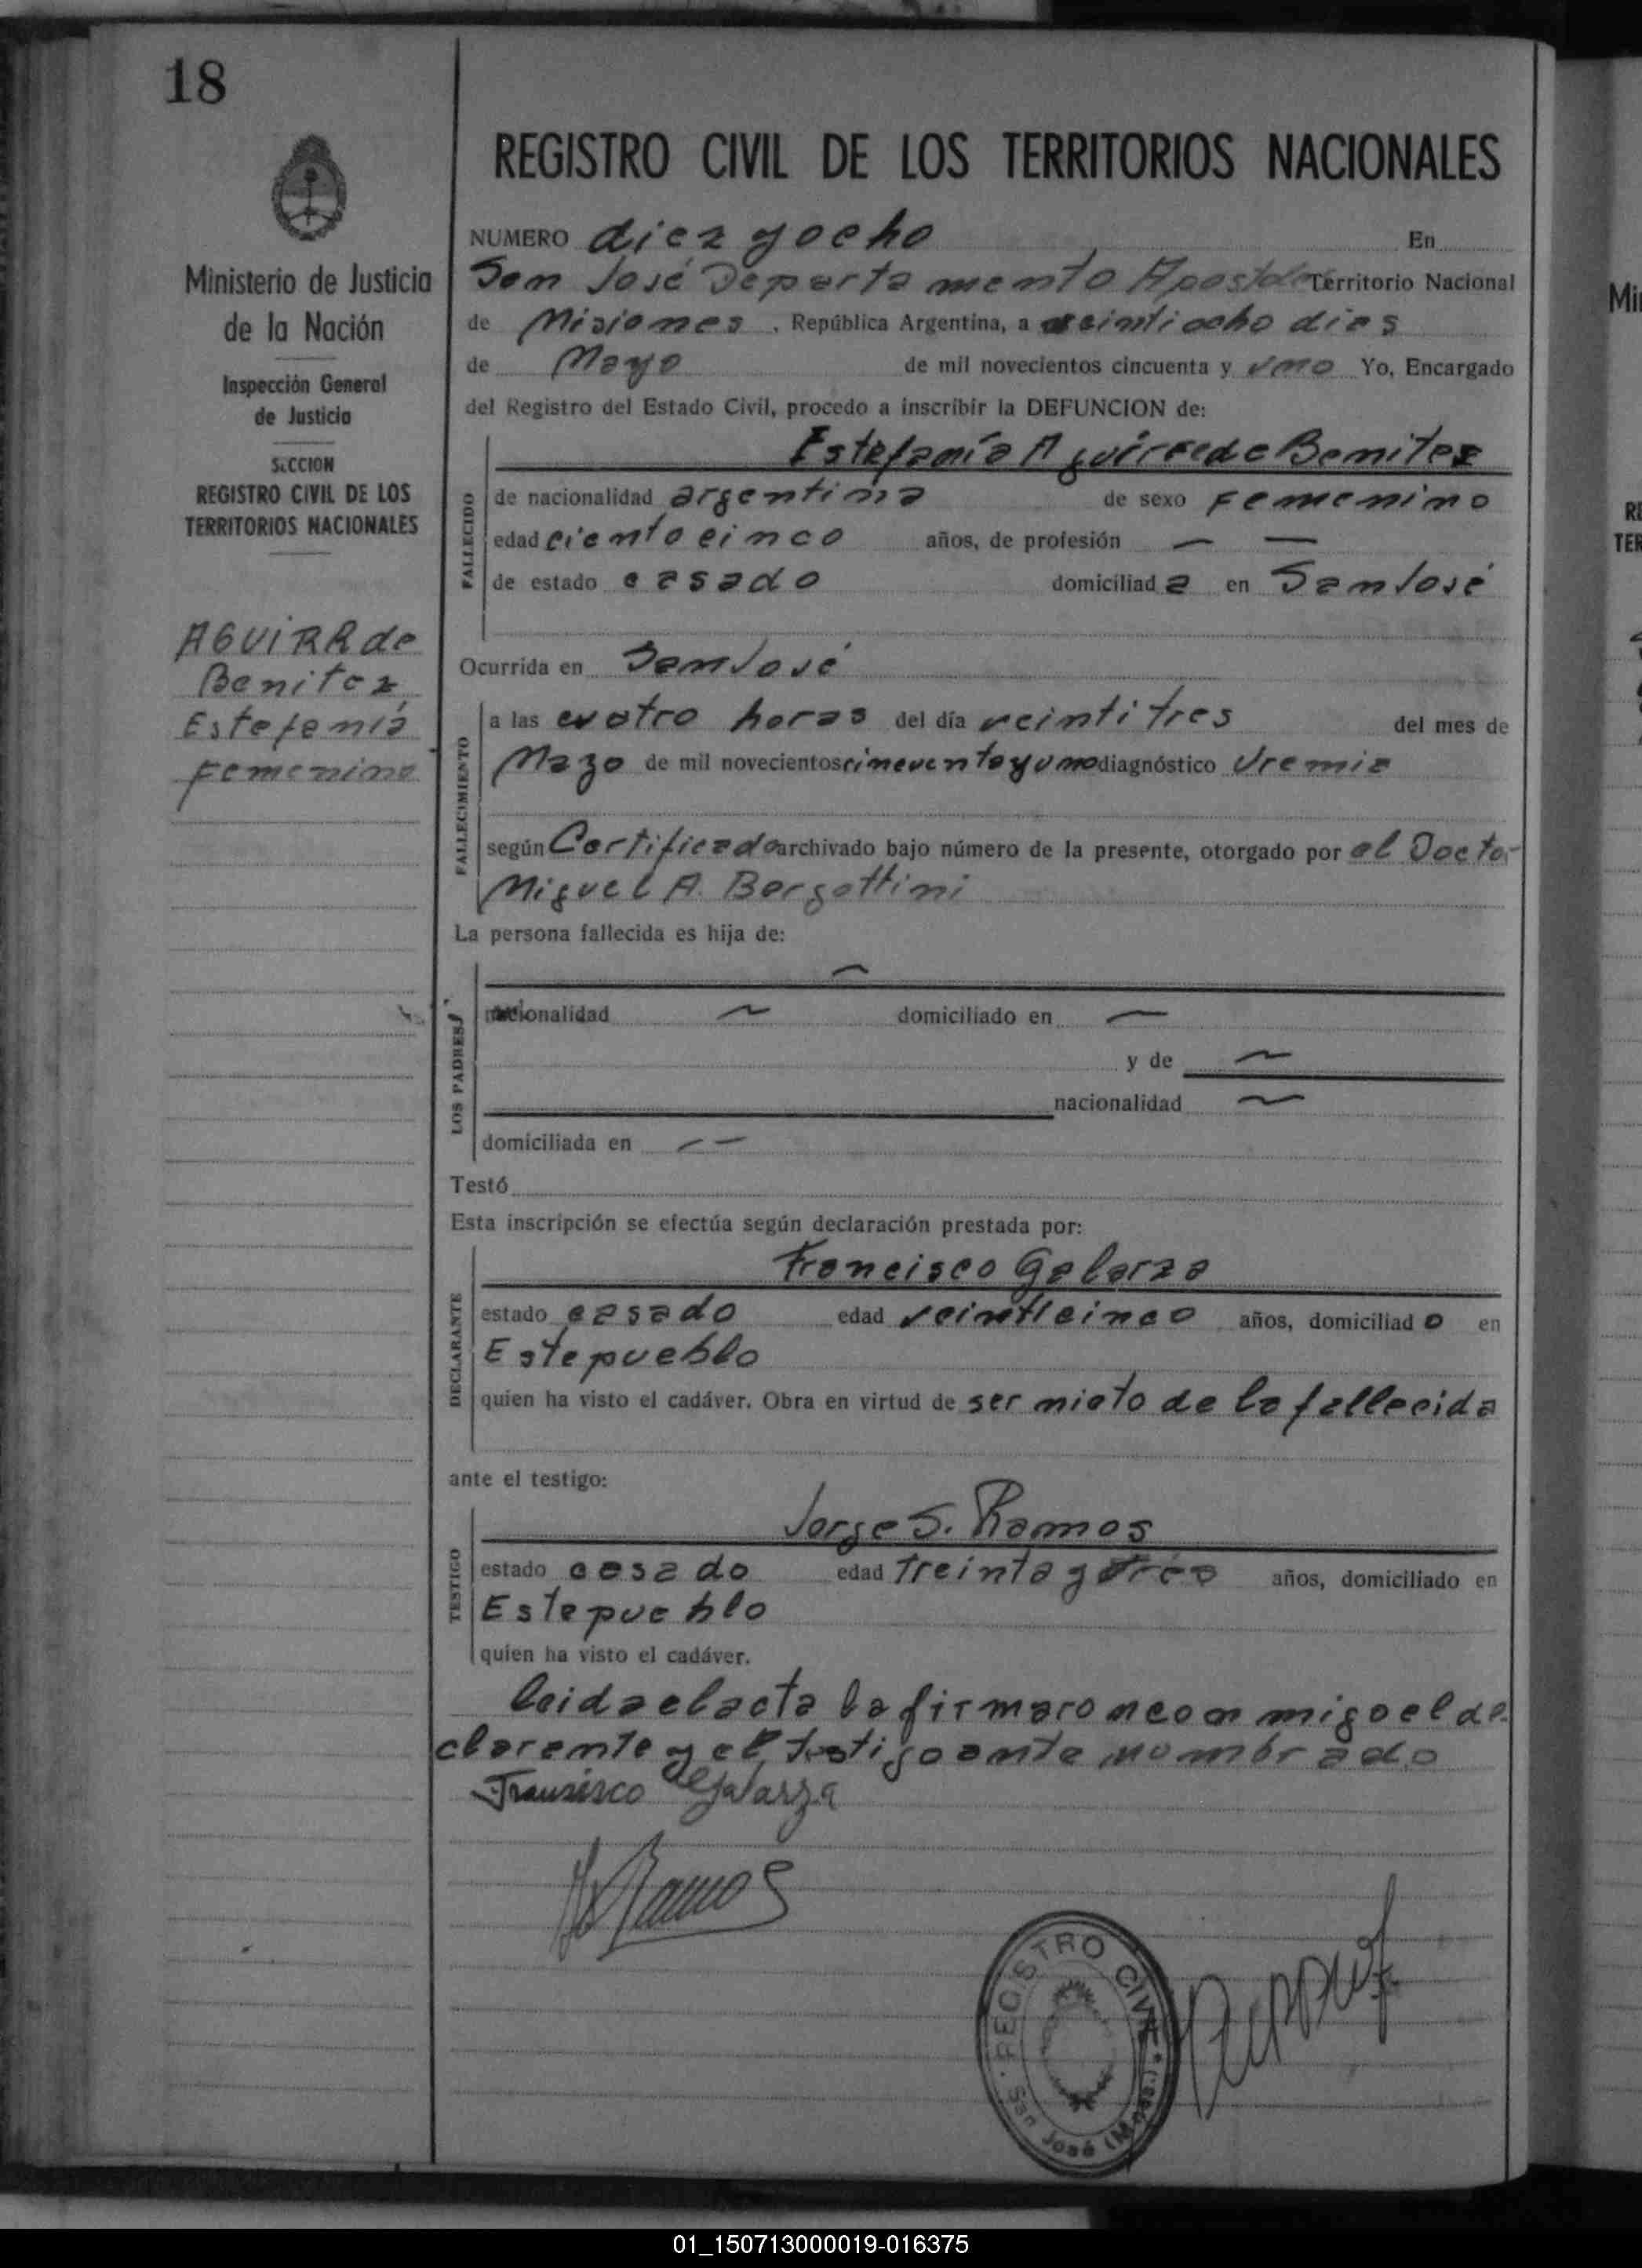 18
REGISTRO CIVIL DE LOS TERRITORIOS NACIONALES
Ministerio de Justicia
de la Nación
Inspección General
de Justicia
SECCION
REGISTRO CIVIL DE LOS
TERRITORIOS NACIONALES
AGUIRR de
Benitez
Estefenia
femenino
NUMERO diez y ocho En
San José Departamento Apostoles Territorio Nacional
de Misiones, República Argentina, a veintiocho dias
de Mayo de mil novecientos cincuenta y uno Yo, Encargado
del Registro del Estado Civil, procedo a inscribir la DEFUNCION de:
Estefania Aguirre de Benitez
FALLECIDO
de nacionalidad argentina de sexo femenino
edad ciento cinco años, de profesión — —
de estado casado domiciliada en San José
Ocurrida en San José
FALLECIMIENTO
a las cuatro horas del día veintitres del mes de
Mayo de mil novecientos cincuenta y uno diagnóstico Uremia
según Certificado archivado bajo número de la presente, otorgado por el Doctor
Miguel A. Bergottini
La persona fallecida es hija de:
LOS PADRES
—
nacionalidad — domiciliado en —
y de —
nacionalidad —
domiciliada en — —
Testó
Esta inscripción se efectúa según declaración prestada por:
DECLARANTE
Francisco Galarza
estado casado edad veinticinco años, domiciliado en
Este pueblo
quien ha visto el cadáver. Obra en virtud de ser nieto de la fallecida
ante el testigo:
TESTIGO
Jorge S. Ramos
estado casado edad treinta y tres años, domiciliado en
Este pueblo
quien ha visto el cadáver.
leida el acta la firmaron con migo el de
clarente y el testigo ante nombrado
Francisco Galarza
Ramos
REGISTRO CIVIL
San José (Mnes.)
01_150713000019-016375